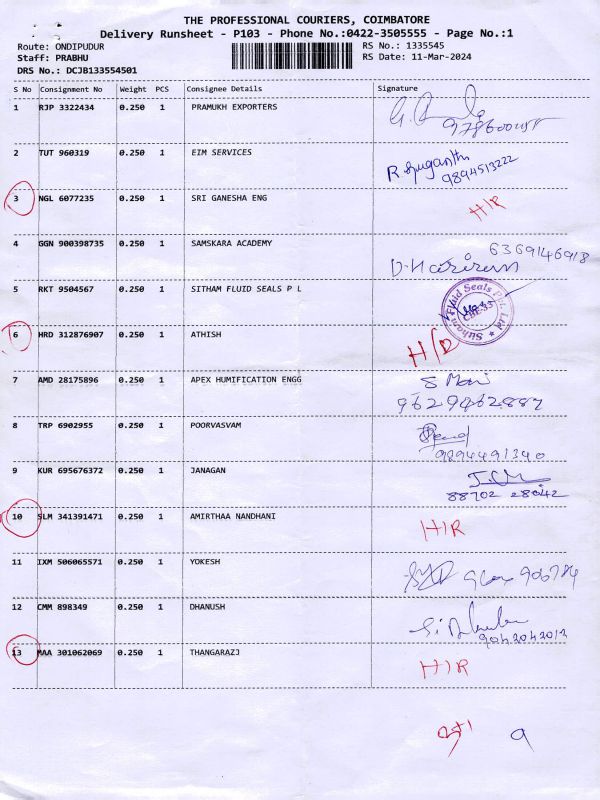 THE PROFESSIONAL COURIERS, COIMBATORE
Delivery Runsheet - P103 - Phone No.:0422-3505555 - Page No.:1
Route: ONDIPUDUR RS No.: 1335545
Staff: PRABHU RS Date: 11-Mar-2024
DRS No.: DCJB133554501
S No Consignment No Weight PCS Consignee Details Signature
1 RJP 3322434 0.250 1 PRAMUKH EXPORTERS
2 TUT 960319 0.250 1 EIM SERVICES R. Suganthi
9894513222
3 NGL 6077235 0.250 1 SRI GANESHA ENG H/R
4 GGN 900398735 0.250 1 SAMSKARA ACADEMY 6369146918
5 RKT 9504567 0.250 1 SITHAM FLUID SEALS P L Sitham Fluid Seals Pvt. Ltd
6 HRD 312876907 0.250 1 ATHISH H/R
7 AMD 28175896 0.250 1 APEX HUMIFICATION ENGG S Mani
9629462887
8 TRP 6902955 0.250 1 POORVASVAM
9894491340
9 KUR 695676372 0.250 1 JANAGAN
88702 28042
10 SLM 341391471 0.250 1 AMIRTHAA NANDHANI H/R
11 IXM 506065571 0.250 1 YOKESH
12 CMM 898349 0.250 1 DHANUSH
9042042012
13 MAA 301062069 0.250 1 THANGARAZJ H/R
9